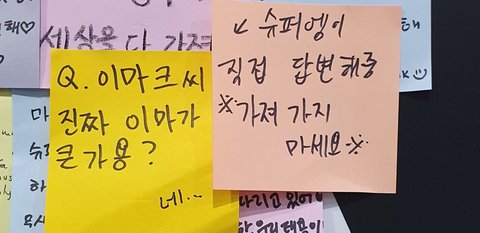 세상을 다 가져
Q. 이마크씨
진짜 이마가
큰가용?
네..
↙ 슈퍼엠이
직접 답변해줌
※가져 가지
마세요※